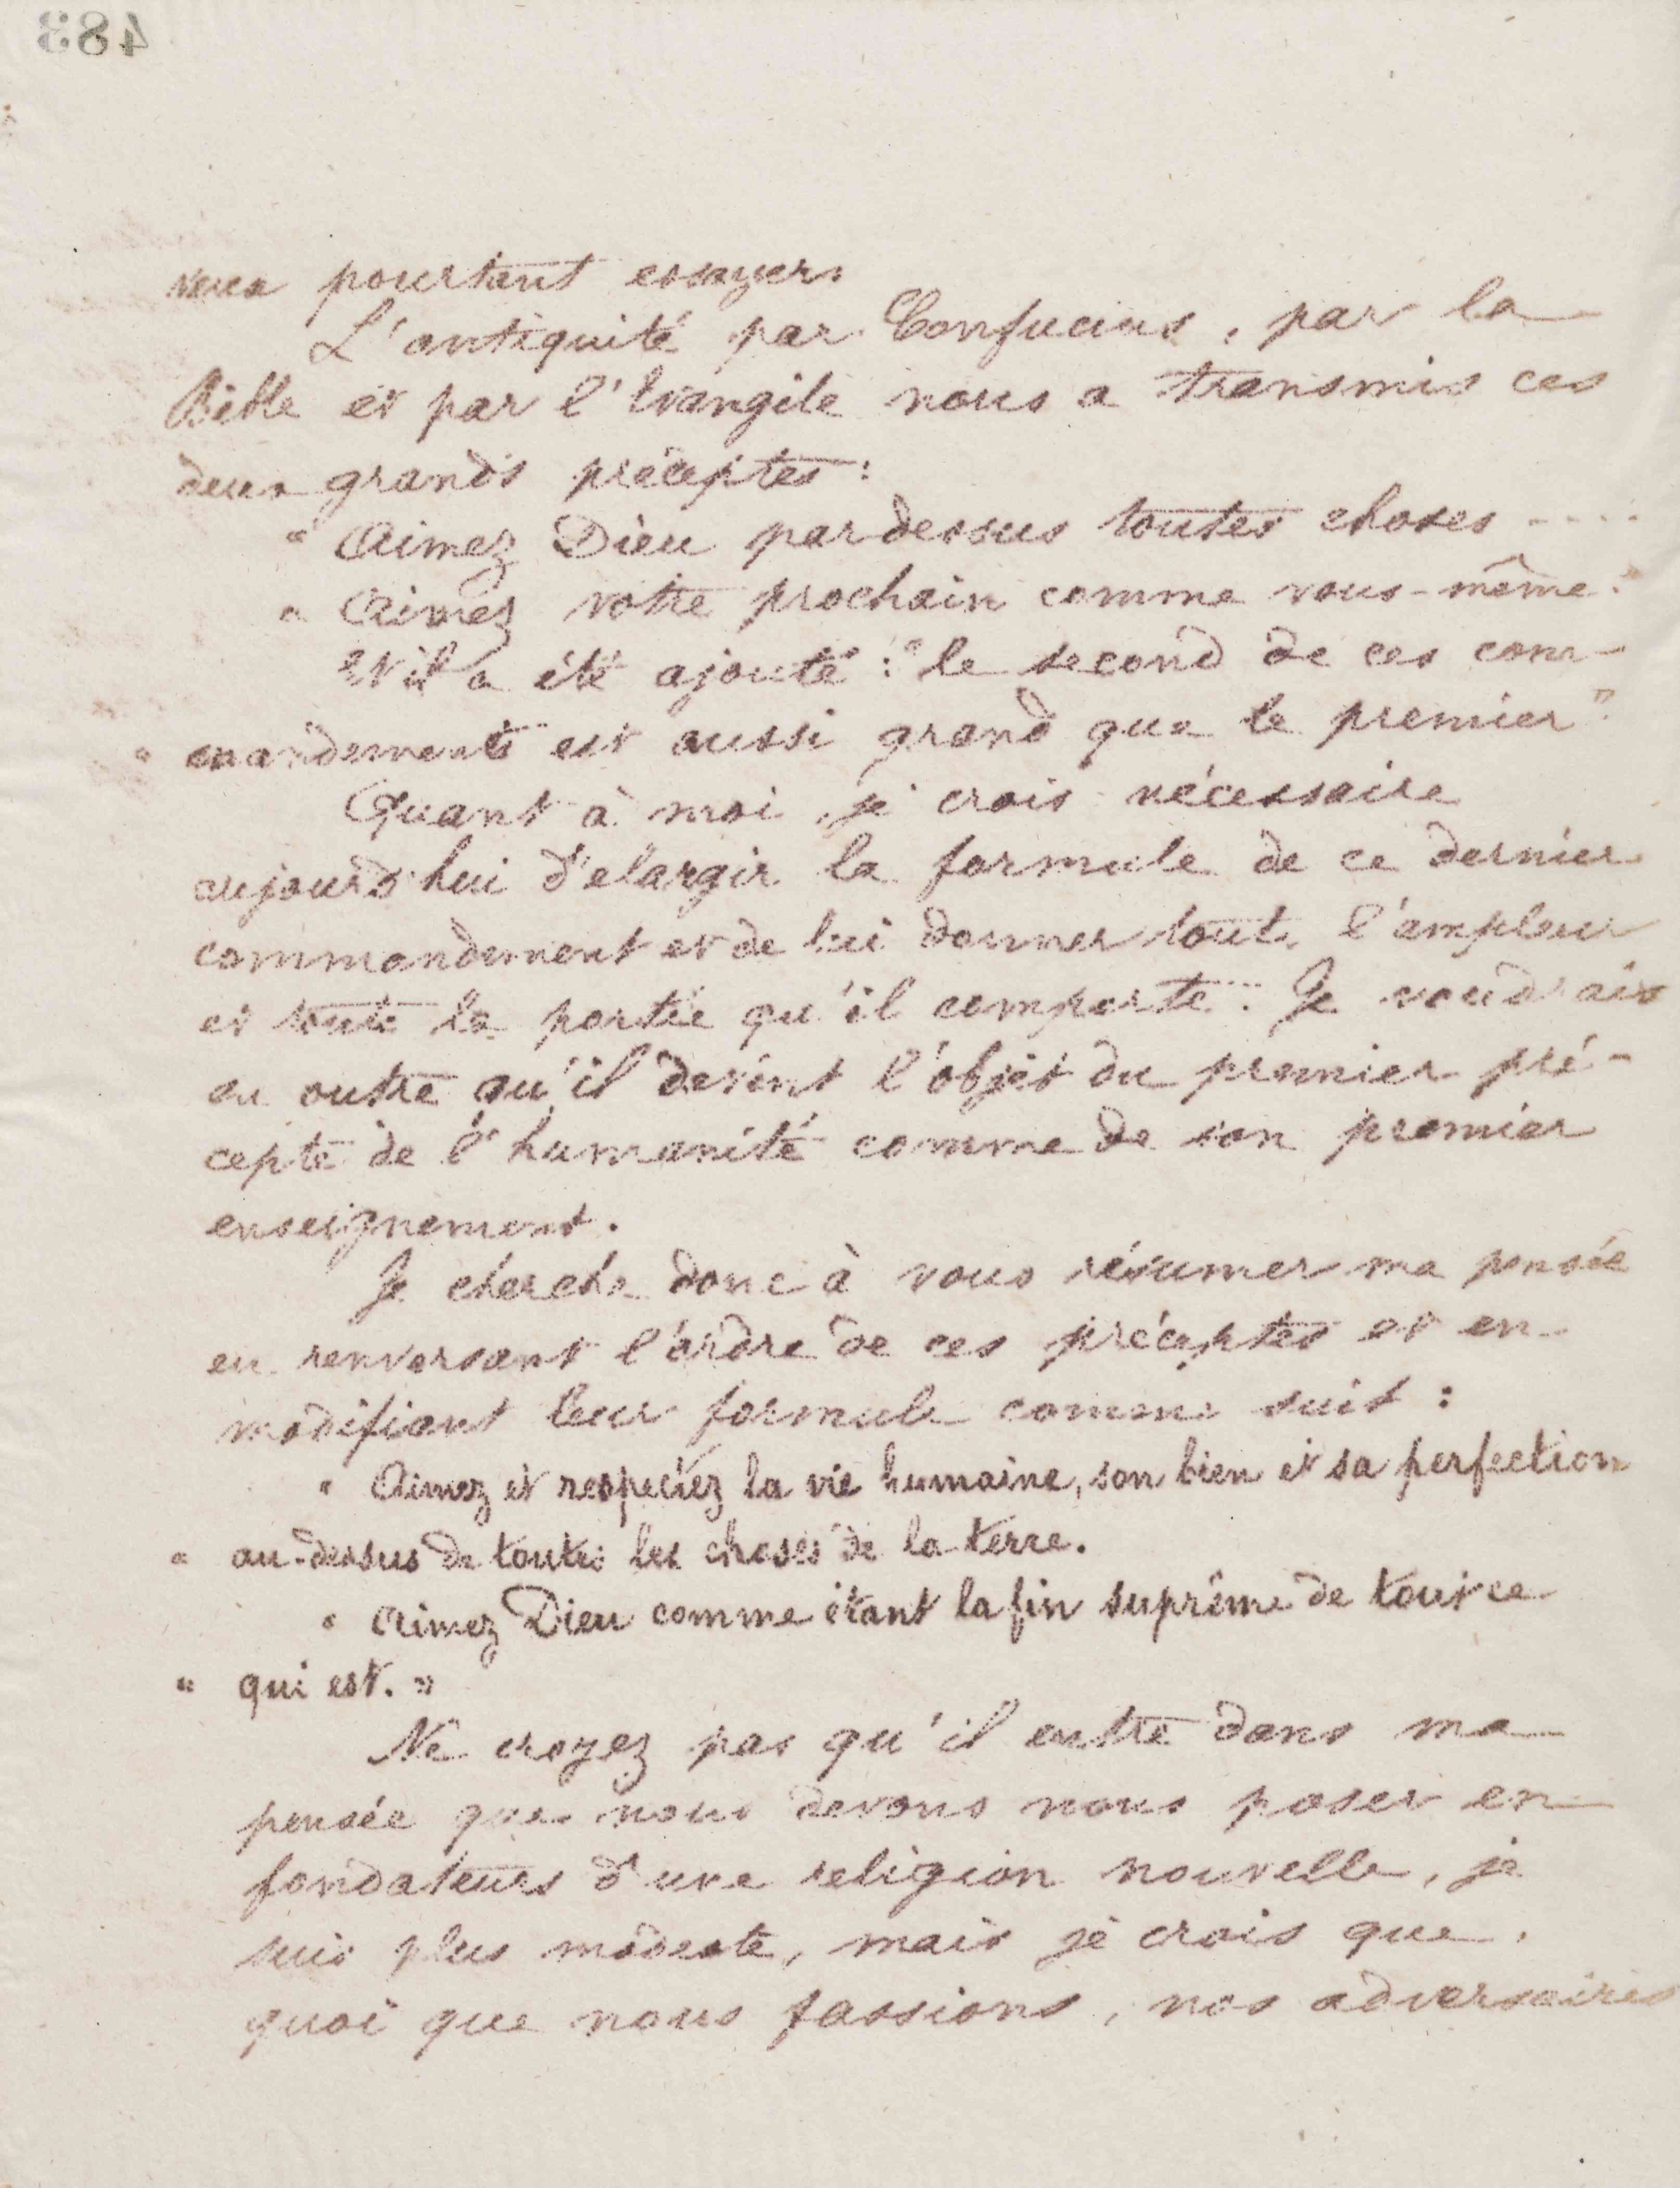 483
veux pourtant essayer.
L'antiquité par Confucius, par la
Bible et par l'Evangile nous a transmis ces
deux grands préceptes :
" Aimez Dieu pardessus toutes choses ....
" Aimez votre prochain comme vous-même."
Et il a été ajouté : "le second de ces com-
" mandements est aussi grand que le premier".
Quant à moi, je crois nécessaire
aujourd'hui d'elargir la formule de ce dernier
commandement et de lui donner toute l'ampleur
et toute la portée qu'il comporte. Je voudrais
en outre qu'il devint l'objet du premier pré-
cepte de l'humanité comme de son premier
enseignement.
Je cherche donc à vous résumer ma pensée
en renversant l'ordre de ces préceptes et en
modifiant leur formule comme suit :
" Aimez et respectez la vie humaine, son bien et sa perfection
" au-dessus de toutes les choses de la terre.
" Aimez Dieu comme étant la fin suprême de tout ce
" qui est. "
Ne croyez pas qu'il entre dans ma
pensée que nous devons nous poser en
fondateurs d'une religion nouvelle, je
suis plus modeste, mais je crois que,
quoi que nous fassions, nos adversaires